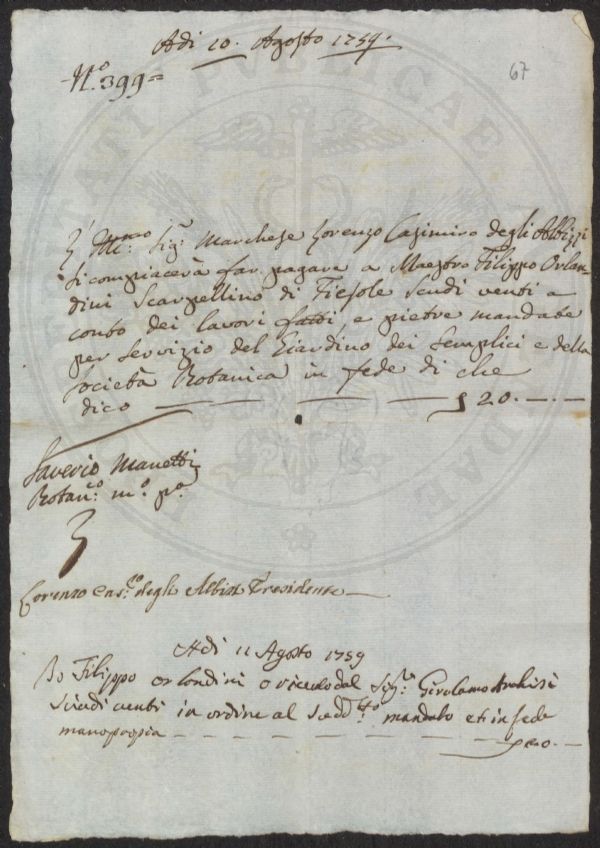 Adi 10. Agosto 1759.
N.o 399=
67
Ill.mo Sig.r Marchese Lorenzo Casimiro degli Albizzi
si compiacerà far pagare a Maestro Filippo Orlan-
dini Scarpellino di Fiesole Scudi venti a
conto dei lavori fatti, e pietre mandate
per servizio del Giardino dei Semplici e della
Società Botanica in fede di che
dico — — — — — 20. — . —
Saverio Manetti
Botan.co m.o p.a
Lorenzo Cas.ro degli Albizi Presidente —
Adi 11 Agosto 1759
Io Filippo orlandini o riceuto dal Sig.re Girolamo
scudi venti in ordine al sudd.tto mandato et in fede
manopropia — — — — — — —